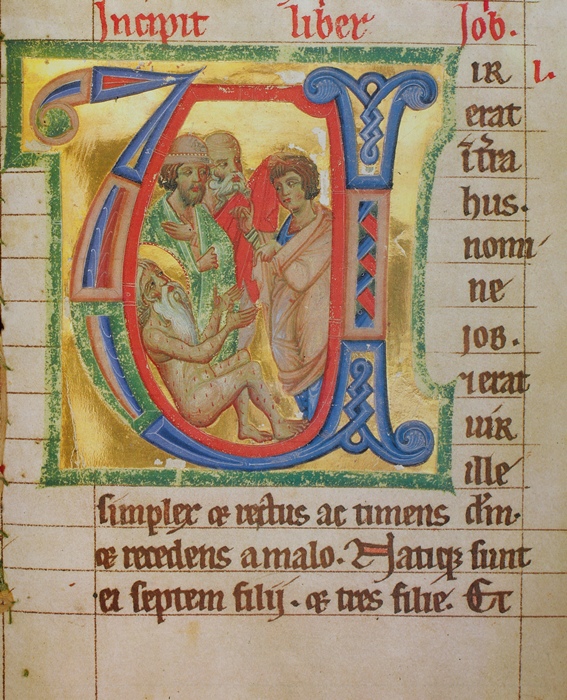 Incipit liber Job.
V IR I.
erat
i t̄ra
hus.
nomi
ne
JOB.
⁊ erat
uir
ille
simplex & rectus ac timens dm̄.
& recedens a malo. Natiq; sunt
ei septem filij. & tres filie. Et